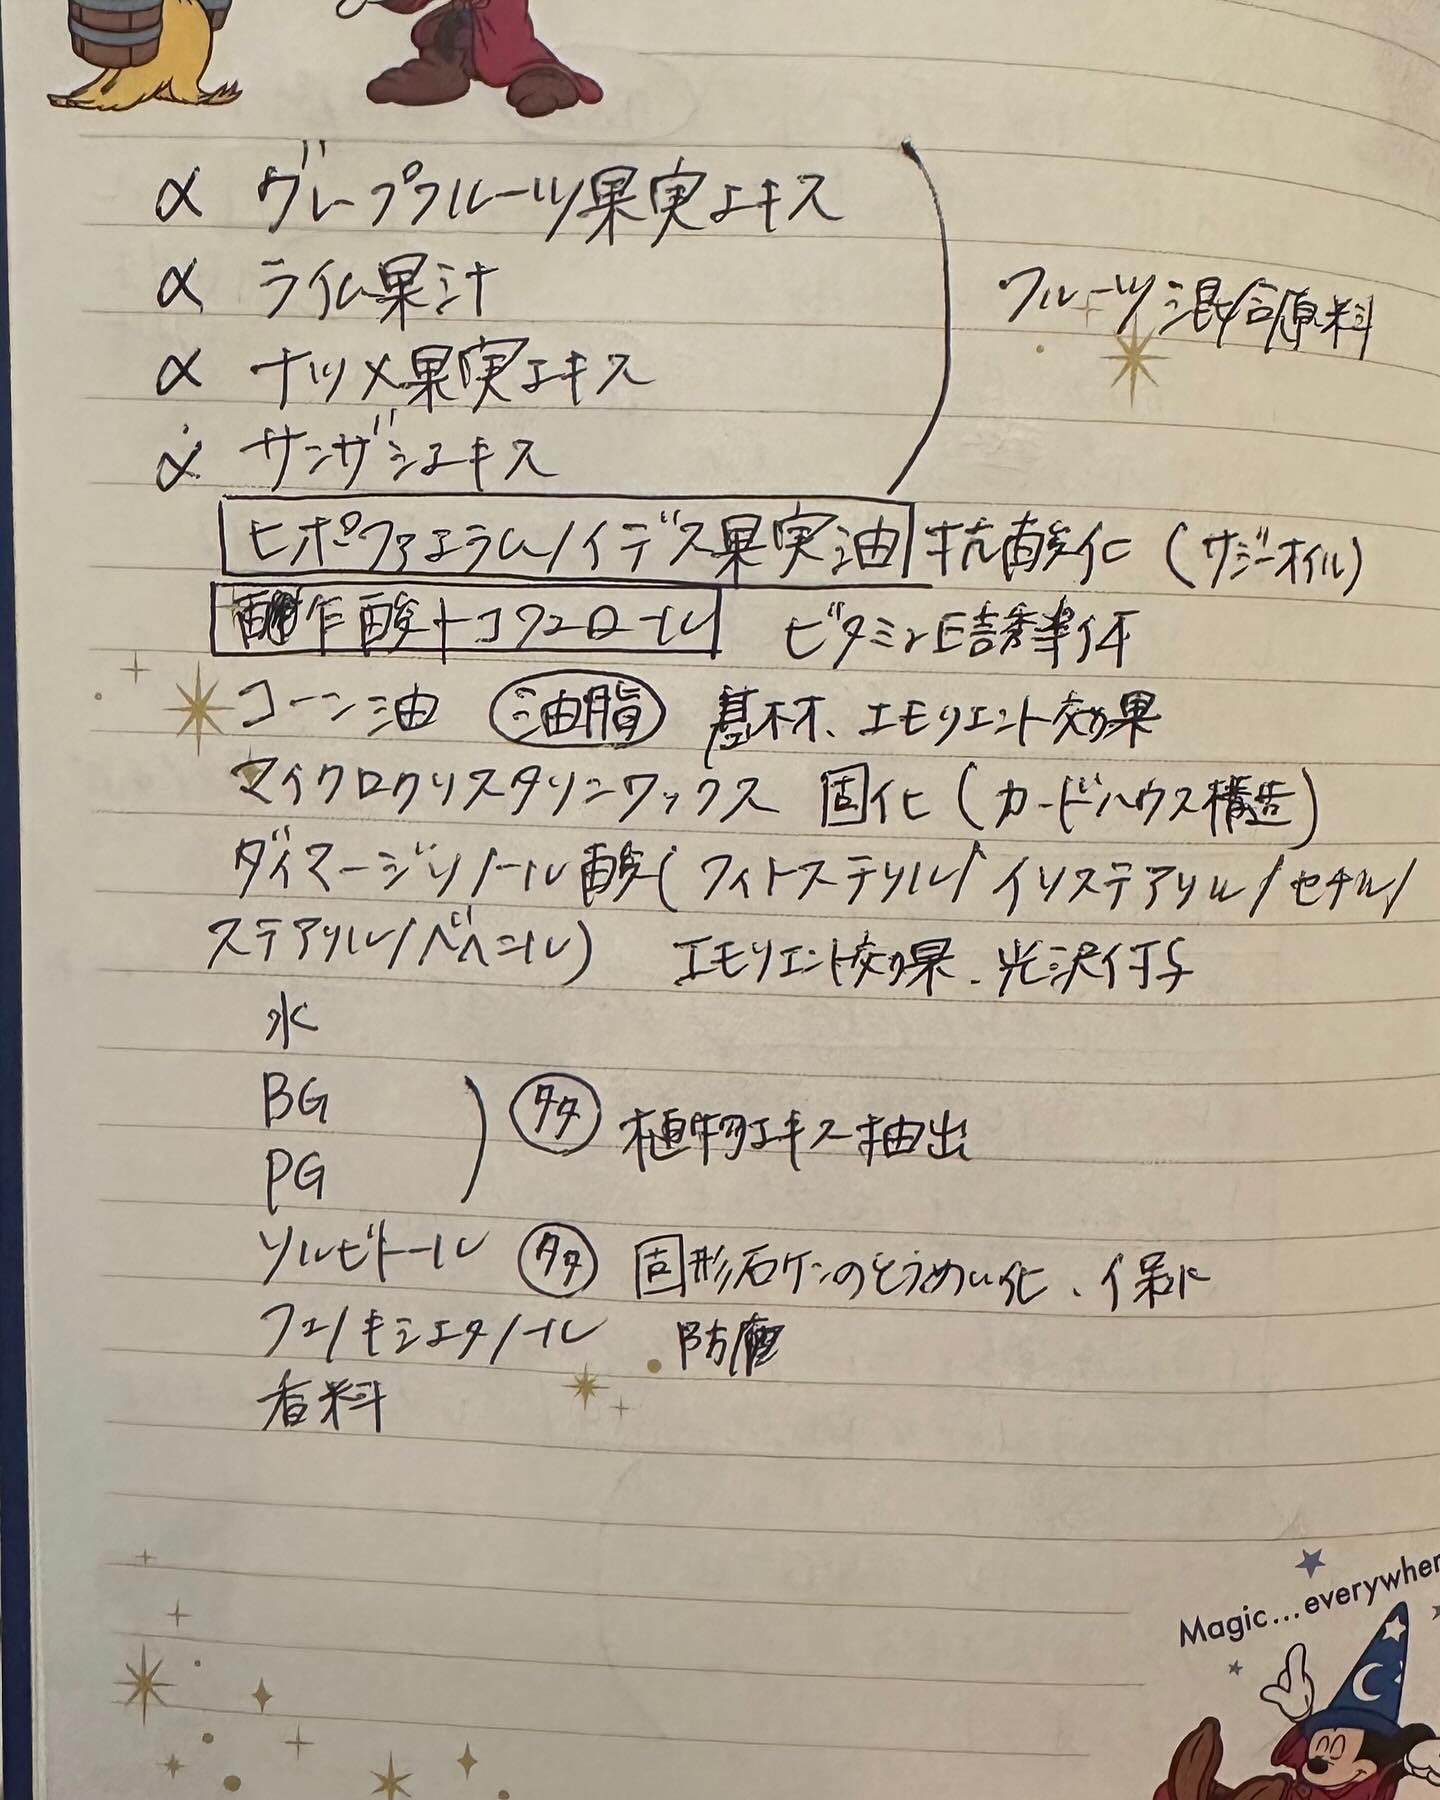 α グレープフルーツ果実エキス
α ライム果汁
フルーツ混合原料
α ナツメ果実エキス
α サンザシエキス
ヒポファエラムノイデス果実油 抗酸化 (サジーオイル)
酢酸トコフェロール ビタミンE誘導体
コーン油 油脂 基材、エモリエント効果
マイクロクリスタリンワックス 固化 (カードハウス構造)
ダイマージリノール酸(フィトステリル/イソステアリル/セチル/
ステアリル/ベヘニル) エモリエント効果、光沢付与
水
BG
タタ 植物エキス抽出
PG
ソルビトール タタ 固形石ケンのとうめい化、保水
フェノキシエタノール 防腐
香料
Magic...everywher